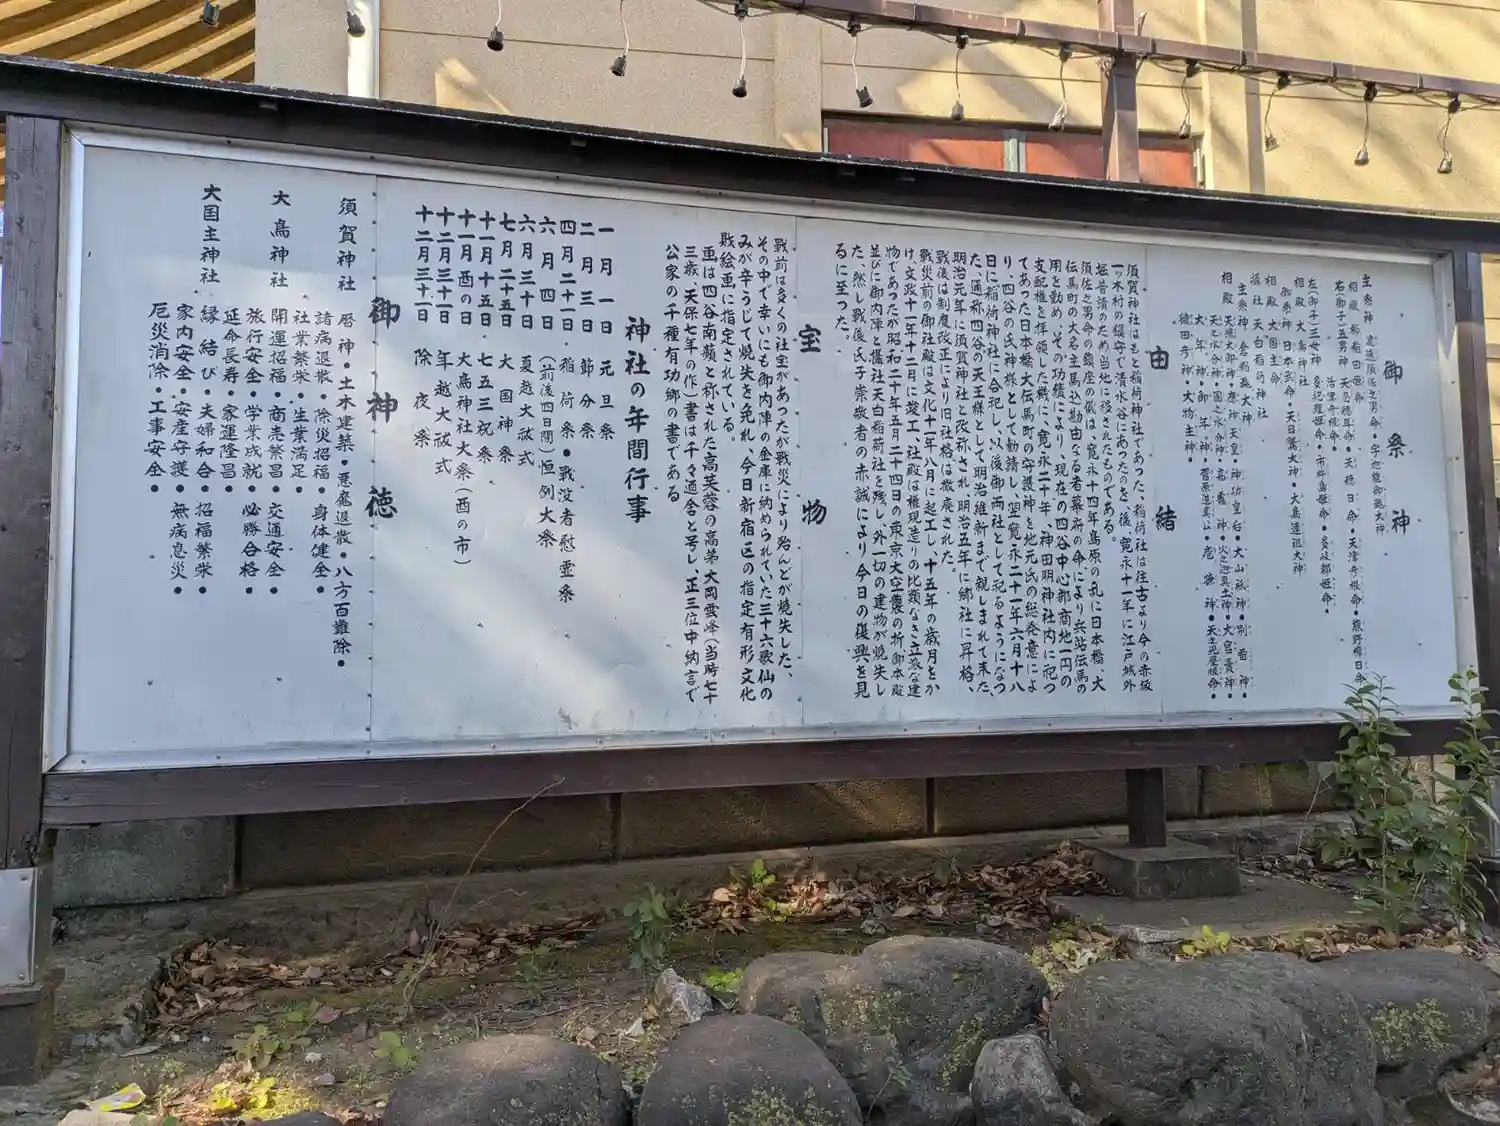 御祭神
主祭神 建速須佐之男命・宇迦能御魂大神
相殿 大鳥神社
御祭神 日本武命・天日鷲大神・大鳥連祖大神
相殿 大国主命
摂社 天白稲荷神社
主祭神 倉稲魂大神
相殿
大年神・御年神・菅原道真公・庖瘡神・天之児屋根命・
大物主神・
由結
須賀神社はもと稲荷神社であった、稲荷社は往古より今の赤坂
一ツ木村の鎮守で清水谷にあったのを後、寛永十一年に江戸城外
堀普請のため当地に移されたものである。
須佐之男命の鎮座の儀は、寛永十四年島原の乱に日本橋、大
伝馬町の大名主馬込勘由なる者幕府の命により兵站伝馬の
用を勤め、その功績により、現在の四谷中心部商地一円の
支配権を拝領した機に、寛永二十年、神田明神社内に祀つ
てあった日本橋大伝馬町の守護神を地元氏の総発意によ
り、四谷の氏神様として勧請し、翌寛永二十一年六月十八
日に稲荷神社に合祀し、以後御両社として祀るようになつ
た、通称四谷の天王様として明治維新まで親しまれて来た、
明治元年に須賀神社と改称され明治五年に郷社に昇格、
戦後は制度改正により旧社格は撤廃された。
戦災前の御社殿は文化十一年八月に起工し、十五年の歳月をか
け、文政十一年十二月に竣工、社殿は権現造りの比類なき立派な建
物であったが昭和二十年五月二十四日の東京大空襲の折、御本殿
並びに御内陣と攝社天白稲荷社を残し、外一切の建物が焼失し
た、然し戦後氏子崇敬者の赤誠により今日の復興を見
るに至った。
宝物
戦前は多くの社宝があったが戦災により殆んどが焼失した、
その中で幸いにも御内陣の金庫に納められていた三十六歌仙の
みが辛うじて焼失を免れ、今日新宿区の指定有形文化
財絵画に指定されている。
画は四谷南蘋と称された高芙蓉の高弟大岡雲峰(当時七十
三歳、天保七年の作)書は千々通舎と号し、正三位中納言で
公家の千種有功郷の書である
神社の年間行事
一月一日 元旦祭
二月三日 節分祭
四月二十一日 稲荷祭・戦没者慰霊祭
六月四日 (前後四日間)恒例大祭
六月三十日 夏越大祓式
七月二十五日 大国神祭
十一月十五日 七五三祝祭
十一月酉の日 大鳥神社大祭(酉の市)
十二月三十一日 年越大祓式
十二月三十一日 除夜祭
御神徳
須賀神社 暦神・土木建築・悪魔退散・八方百難除・
諸病退散・除災招福・身体健全・
社業繁栄・生業満足・
大鳥神社 開運招福・商売繁昌・交通安全・
旅行安全・学業成就・必勝合格・
延命長寿・家運隆昌・
大国主神社 縁結び・夫婦和合・招福繁栄・
家内安全・安産守護・無病息災・
厄災消除・工事安全・